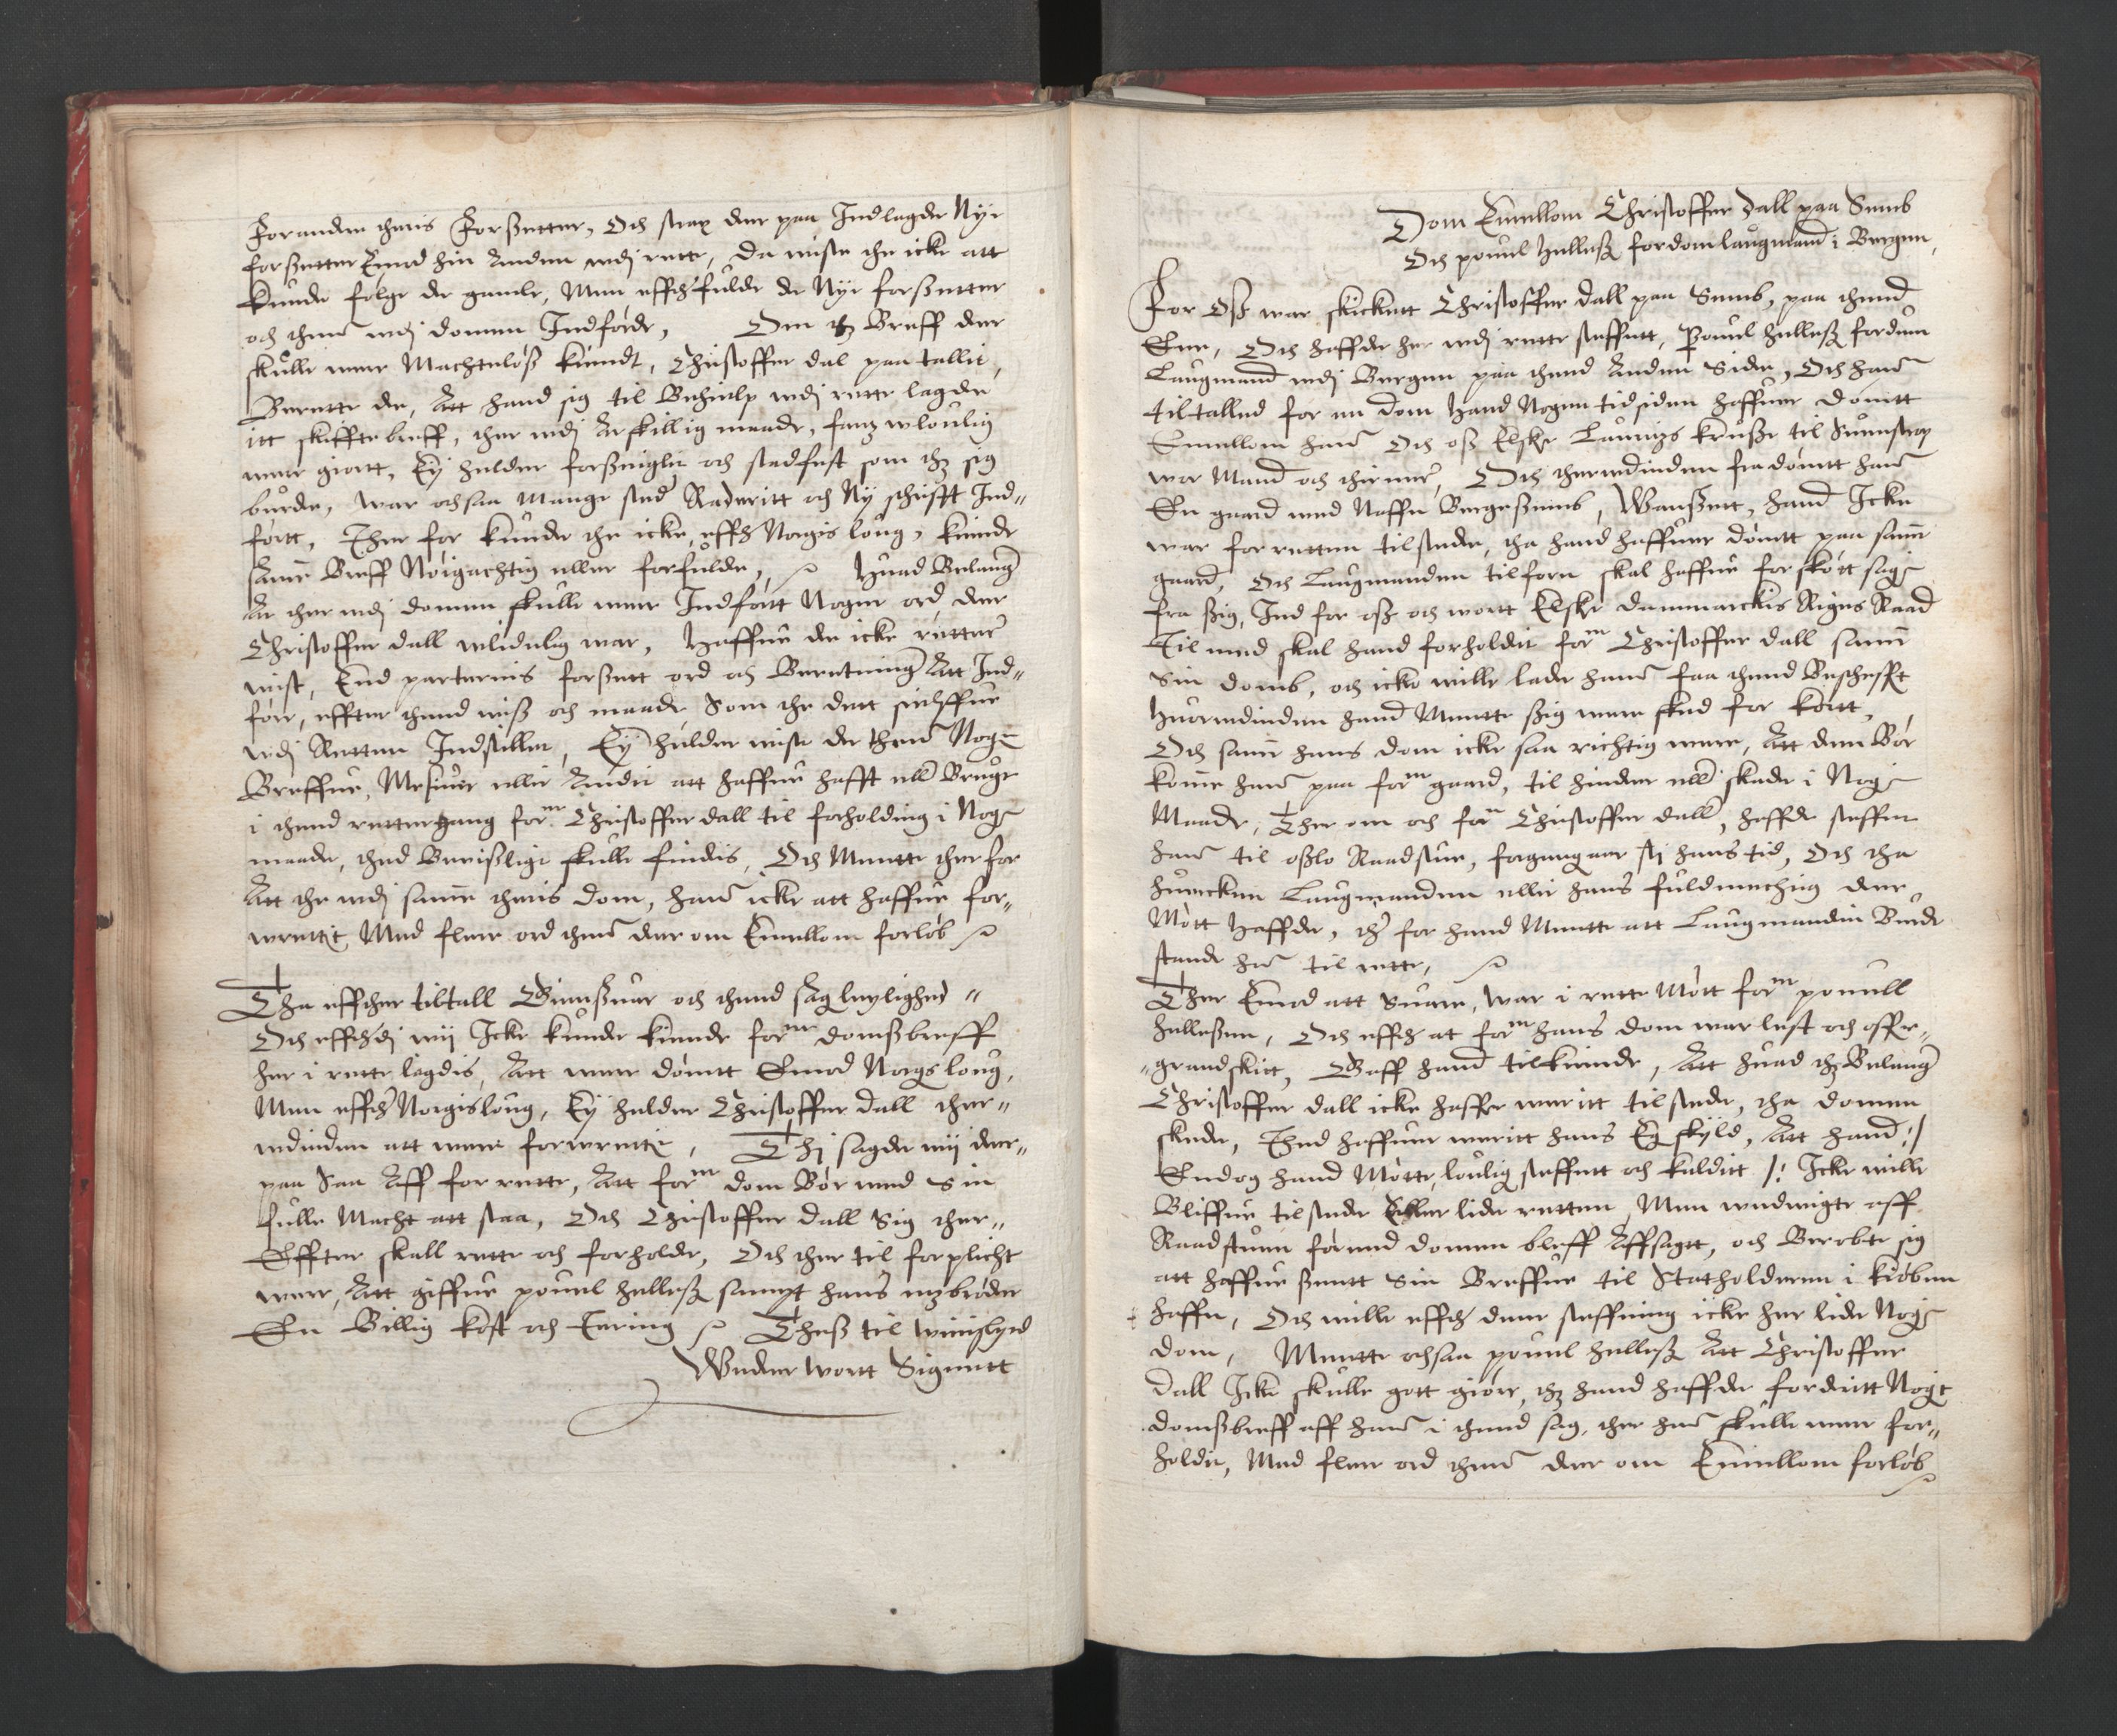 Forandre theris Forßetter, Och strax der paa Indlagde Nÿe
forßetter Emod hin Anden udj rette, da miste the icke att
kunde følge de gamle, Men effther fulde de Nÿe forßetter
och thenn udj domen Indførde, Om thz Breff der
skulle were Machteløß kiendt, Christoffer dal paa tallit,
Berette de, Att hand sig til Behielp udj rette lagde
itt skiffte breff, ther udj Atskillig maade, fanz wloulig
were giortt, Eÿ heldir forßeiglit och stadfest som thz sig
burde, war ochsaa mange sted Raderitt och Nÿ schrifft Ind„
førtt, Ther for kunde the icke, effther Norgis loug, kiende
samme Breff Nöigachtig eller forfulde, Huad Belang
At ther udj domen skulle were Indførtt Noger ord, der
Christoffer dall wlidelig war, Haffue de icke retter
mist, End parternis forßett ord och Beretning Att Ind„
føre, effter thend wiß och maade Som the dett sielffue
udj Retten Indstillet, Eÿ heldir miste de thend Nogen
Breffue, Mesiuer eller Andit att haffue hafft eller Bruge
i thend rettergang for.ne Christoffer dall til forholding i Noger
maade, thed Beuißlige skulle findis, Och Mentte ther for
Att the udj samme theris dom, hanom icke att haffue for„
wrettit, Med flere ord thenom der om Emellom forløb
Tha effther tiltall Giensuar och thend sag leylighed „
Och effthi dj wij Icke kunde kiende for.ne domßbreff
her i rette lagdis, Att were dömtt Emod Norgs loug,
Men effther Norgis loug, Eÿ helder Christoffer dall ther„
udinden att were forwrettit, Thj sagde wij der„
paa Saa Aff for rette, Att for.ne dom Bör ued Sin
fulle Macht att staa, Och Christoffer dall Sig ther„
Effter skall rette och forholde, Och ther til forplicht
were, Att giffue pouel helleß sampt hans medbröder
En Billig kost och tering Theß til winißbyrd
Wnder wortt Signett
Dom Emellom Christoffer dall paa Semb
Och pouel Helleß fordom laugmand i Bergen,
For Oß war skickett Christoffer dall paa Semb, paa thend
Ene, Och haffde her udj rette steffnett, Pouel helleß fordum
Laugmand udj Bergen paa thend Anden Side, Och hanom
tiltalled for en dom Hand Nogen tid siden haffuer dömtt
Emellom hanom Och oß Elske Lauritz kruße til Suenstrop
wor Mand och thiener, Och therudinden fra dömtt hanom
En gaard med Naffn Bergeßemb, Wanßett, hand Icke
war for retten tilstede, tha hand haffuer dömtt paa samme
gaard, Och Laugmanden tilforn skal haffue forskött sagen
fra ßig, Ind for oß och wortt Elske dannmarckis Rigens Raad
Til med skal hand forholdit for.ne Christoffer dall samme
Sin domb, och icke wille lade hanom faa thend Beschrefft
Huorudinden hand Mentte ßig were sked for kortt,
Och samme hans dom icke saa richtig were, Att den Bör
komme hanom paa for.ne gaard, til hinder eller skade i Noger
Maade, Ther om och for.ne Christoffer dall, haffde steffnet
hanom til oßlo Raadstue, forgangne stj hans tid, Och tha
huercken Laugmanden eller hans fuldmechtig der
Mött Haffde, ther for hand Mentte att Laugmanden Burde
stande hanom til rette,
Ther Emod att Suare, war i rette Mött for.ne pouell
helleßen, Och effther at for.ne hans dom war lest och offuer„
„grandskitt, Gaff hand tilkiende, Att huad thz Belang
Christoffer dall icke haffue weritt tilstede, tha domen
skede, Thed haffuer weritt hans Eg skyld, Att hand :/
Endog hand Mötte, louglig steffnett och kaldett /: Icke wille
Bliffue tilstede Eller lide retten, Men wndueigte aff
Raadstuen förend domen bleff Affsagtt, och Berobte sig
att haffue ßentt Sin Breffue til Statholderen i kiöben
haffn, Och wille effther denn steffning icke her lide Noger
dom, Mentte ochsaa pouel helleß Att Christoffer
dall Icke skulle gott giöre, thz hand haffde forderitt Noger
domßbreff aff hanom i thend sag, ther hanom skulle were for„
holdit, Med flere ord thenom der om Emellom forløb